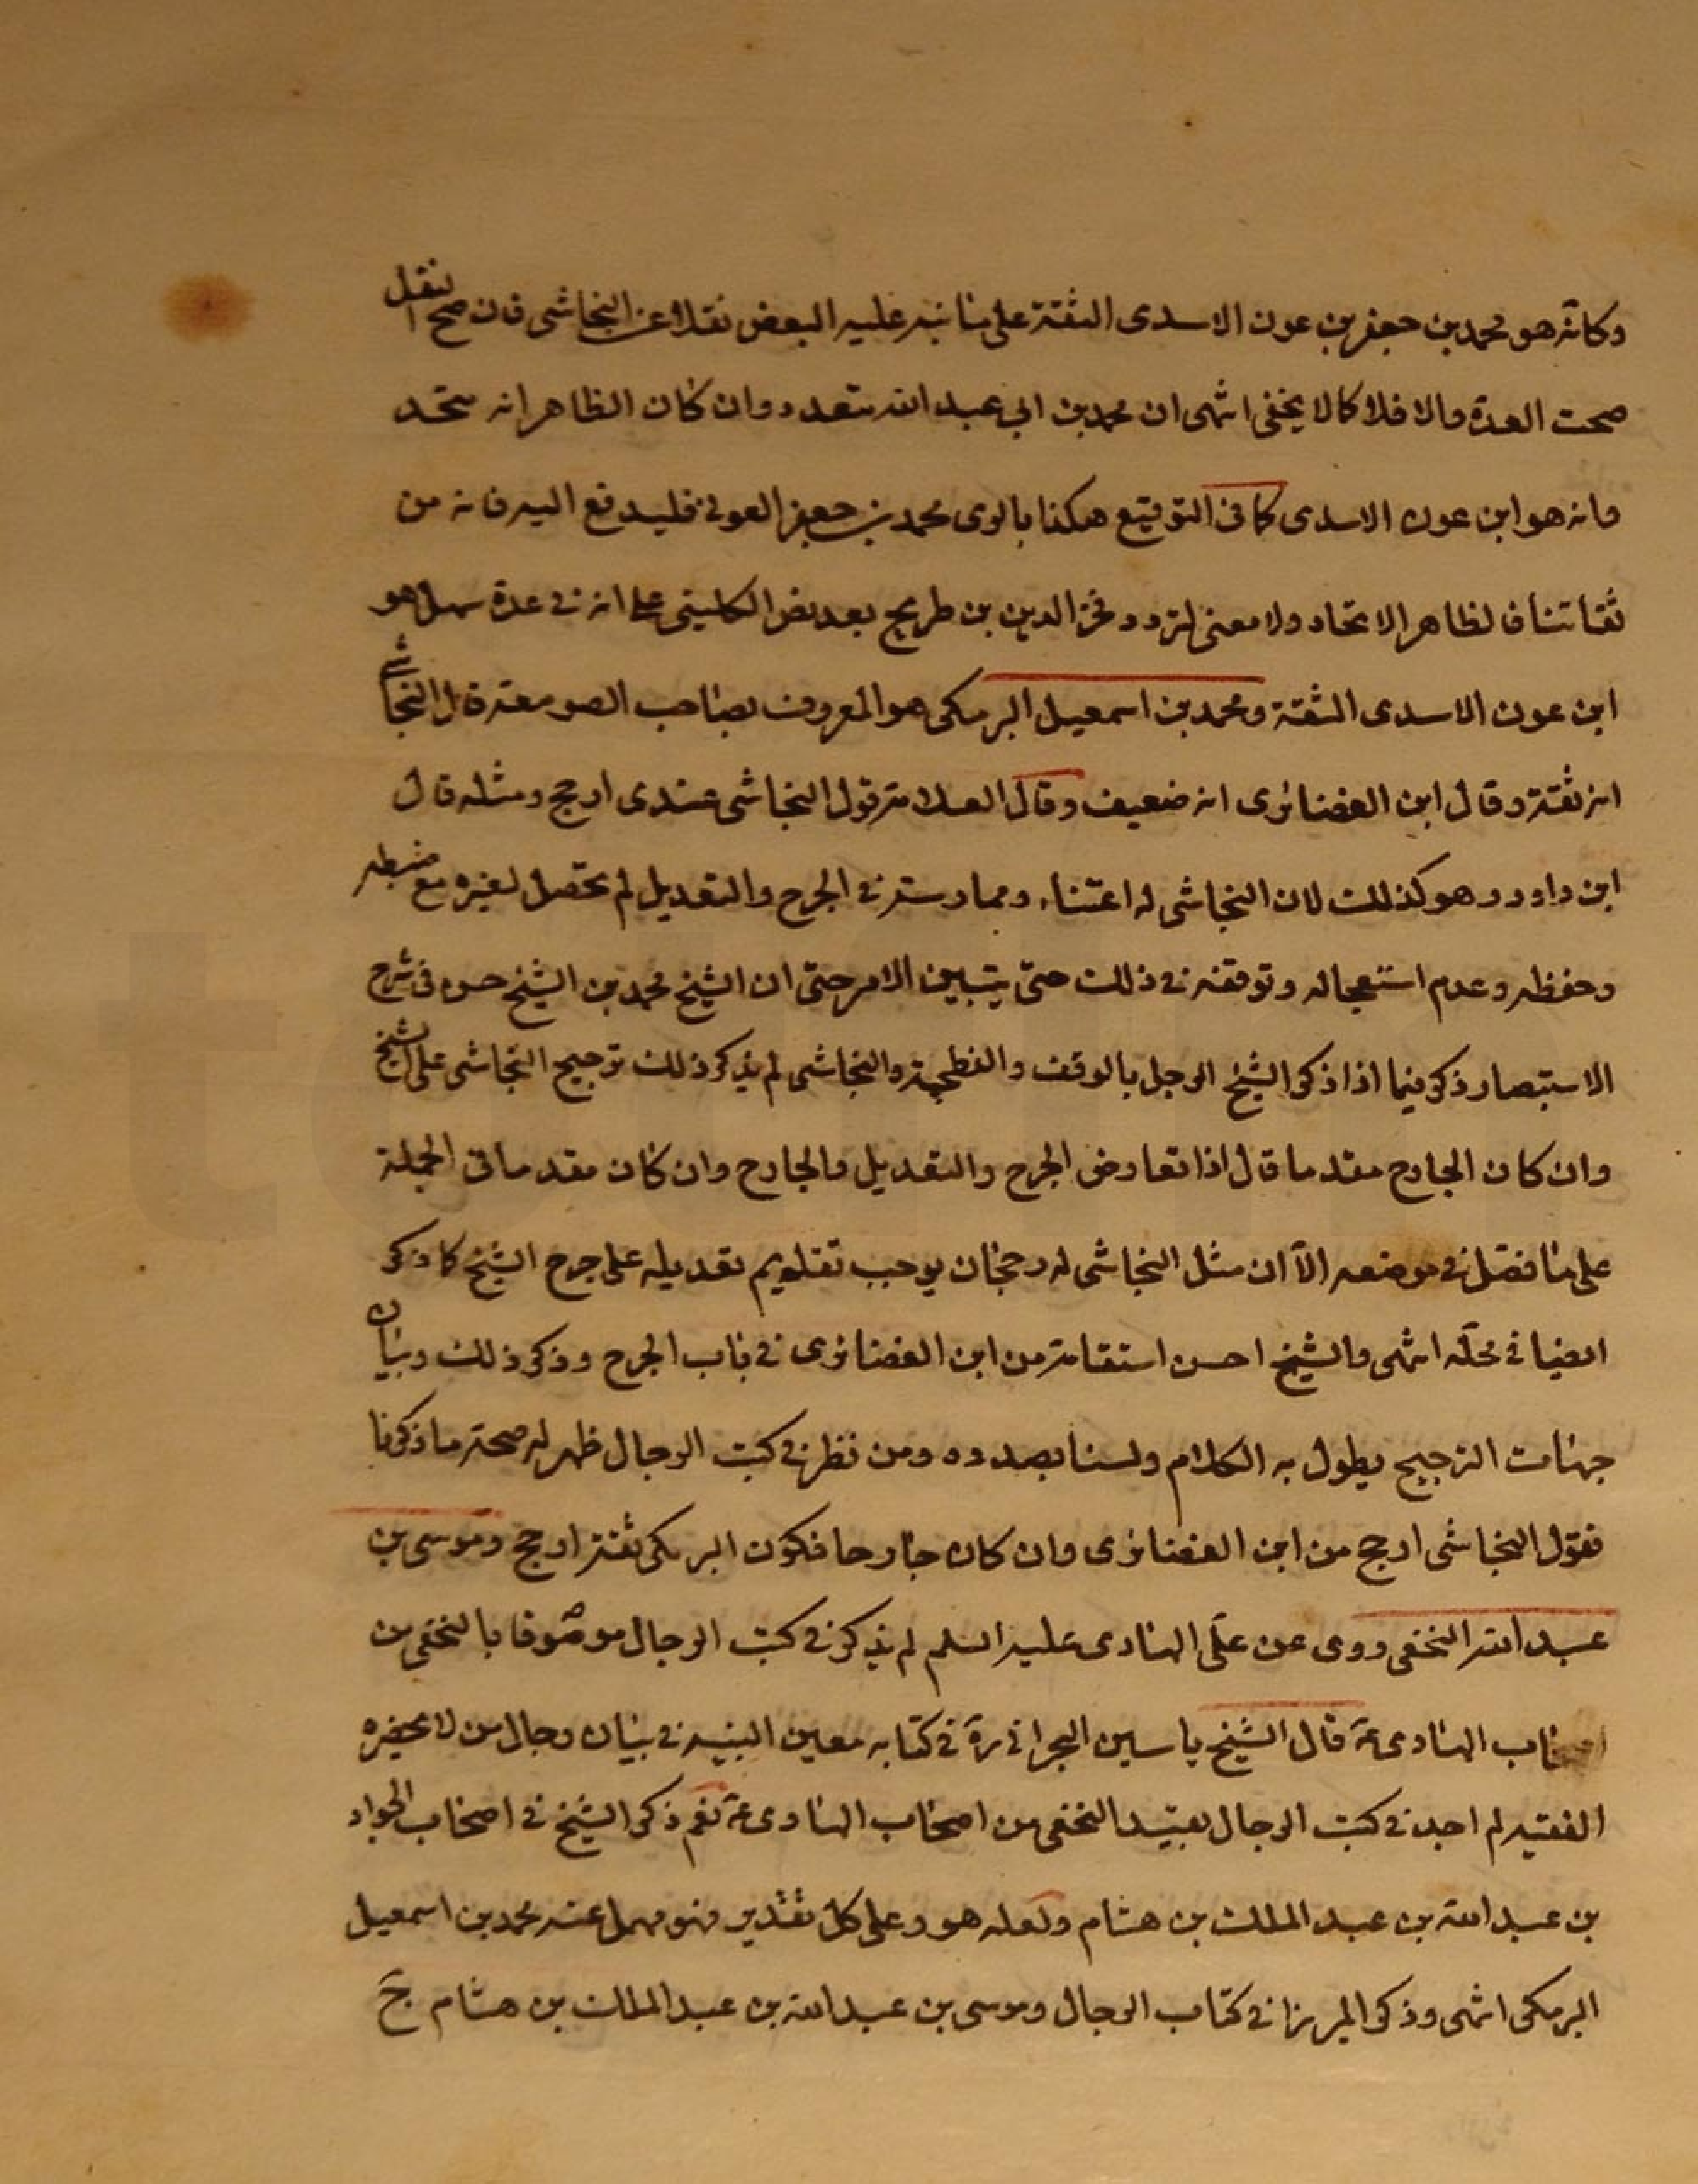 وكانه هو محمد بن جعفر بن عون الاسدى الثقة على ما نبه عليه البعض نقلا عن النجاشى فان صح النقل
صحت العدة والا فلا كما لا يخفى انتهى ان محمد بن ابي عبد الله متعدد وان كان الظاهر انه متحد
وانه هو ابن عون الاسدى كما فى التوقيع هكذا بالرى محمد بن جعفر العوفى فليدفع اليه فانه من
ثقاتنا فالظاهر الاتحاد ولا معنى لتردد فخر الدين بن طريح بعد نص الكلينى على انه فى عدة سهل هو
ابن عون الاسدى الثقة ومحمد بن اسمعيل البرمكى هو المعروف بصاحب الصومعة قال النجاشى
انه ثقة وقال ابن الغضائرى انه ضعيف وقال العلامة قول النجاشى عندى ارجح ومثله قال
ابن داود وهو كذلك لان النجاشى له اعتناء وممارسة فى الجرح والتعديل لم تحصل لغيره مع ضبطه
وحفظه وعدم استعجاله وتوقفه فى ذلك حتى يتبين الامر حتى ان الشيخ محمد بن الشيخ حسن فى شرح
الاستبصار ذكر فيما اذا ذكر الشيخ الرجل بالوقف والفطحية والنجاشى لم يذكر ذلك ترجيح النجاشى على الشيخ
وان كان الجارح مقدما قال اذا تعارض الجرح والتعديل فالجارح وان كان مقدما فى الجملة
على ما فصل فى موضعه الا ان مثل النجاشى له رجحان يوجب تقديم تعديله على جرح الشيخ كما ذكر
ايضا فى محله انتهى والشيخ احسن استقامة من ابن الغضائرى فى باب الجرح وذكر ذلك وبيان
جهات الترجيح يطول به الكلام ولسنا بصدده ومن نظر فى كتب الرجال ظهر له صحة ما ذكرنا
فقول النجاشى ارجح من ابن الغضائرى وان كان جارحا فكون البرمكى ثقة ارجح وموسى بن
عبد الله النخعى روى عن على الهادى عليه السلم لم يذكر فى كتب الرجال موصوفا بالنخعى من
اصحاب الهادى عۤ قال الشيخ ياسين البحرانى رة فى كتابه معين النبيه فى بيان رجال من لا يحضره
الفقيه لم اجد فى كتب الرجال بقيد النخعى من اصحاب الهادى عۤ نعم ذكر الشيخ فى اصحاب الجواد
بن عبد الله بن عبد الملك بن هشام ولعله هو وعلى كل تقدير فهو مهمل عنه محمد بن اسمعيل
البرمكى انتهى وذكر الميرزا فى كتاب الرجال وموسى بن عبد الله بن عبد الملك بن هشام جخ